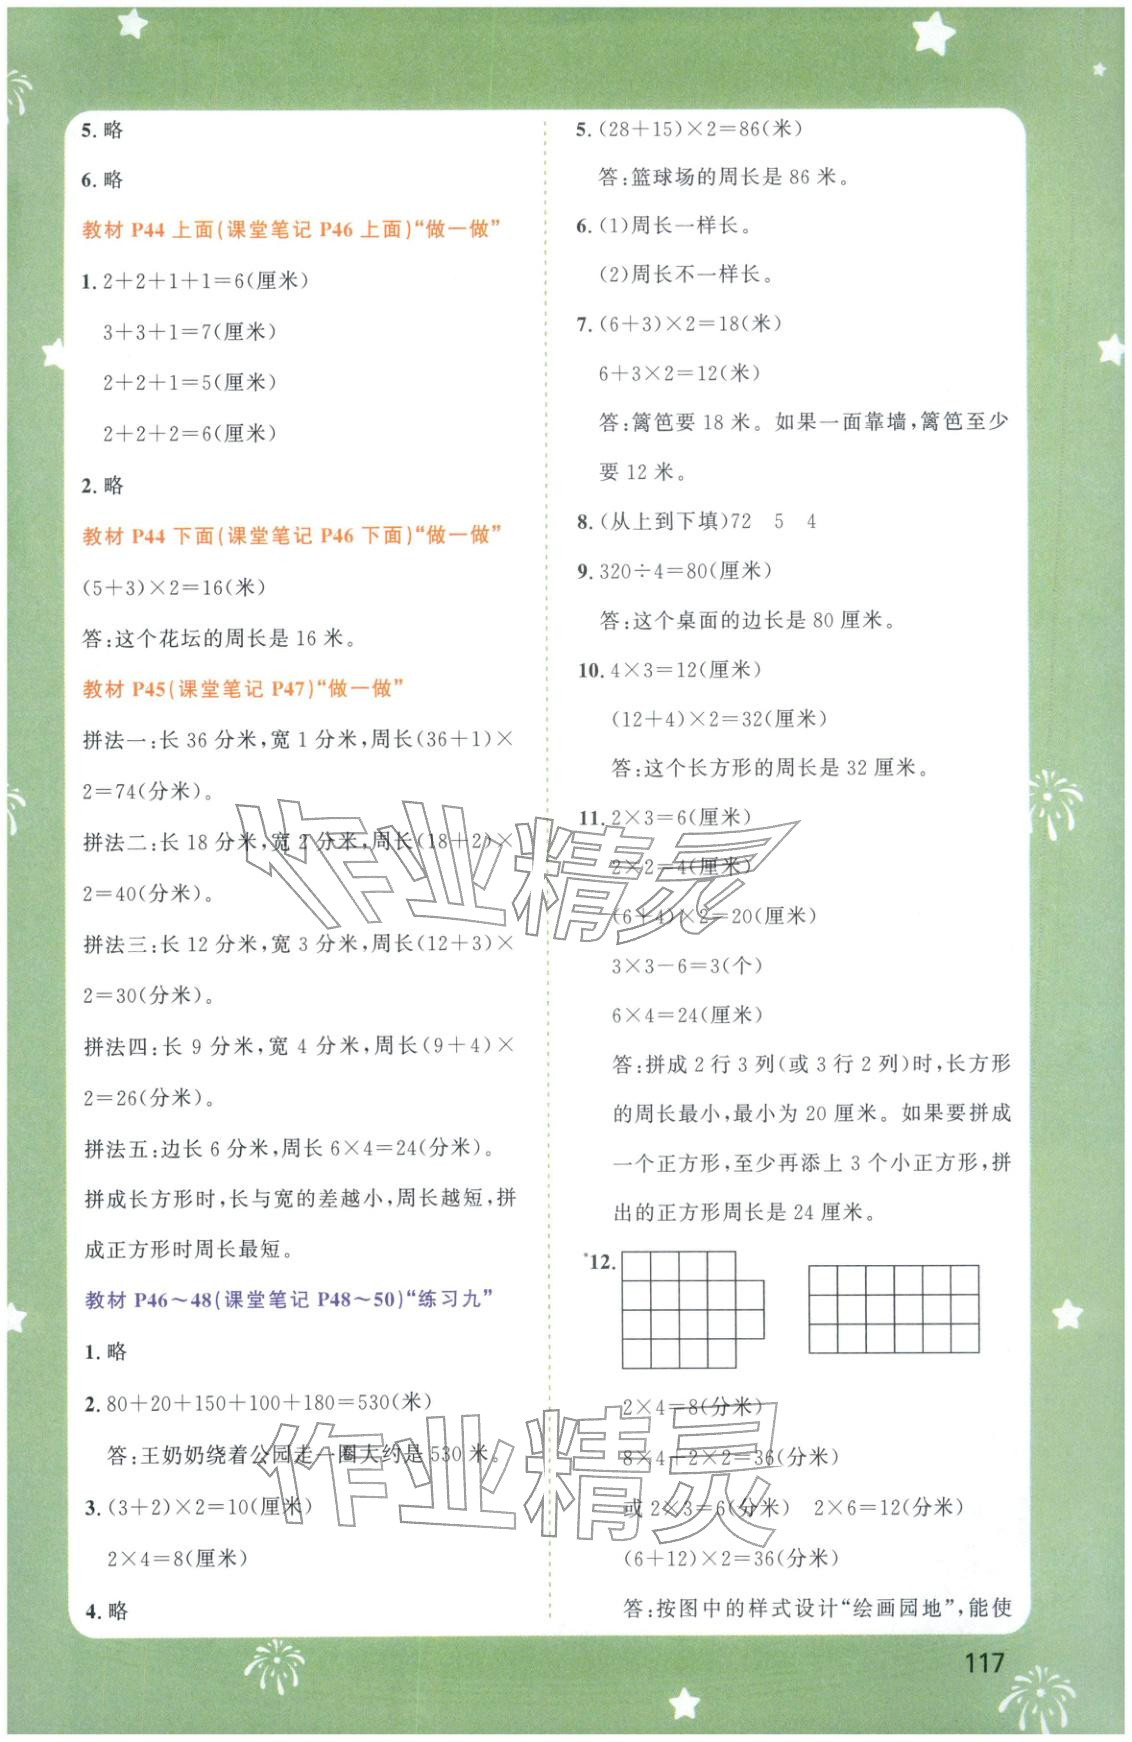 5. 略
6. 略
教材 P44 上面(课堂笔记 P46 上面)“做一做”
1. 2+2+1+1=6(厘米)
3+3+1=7(厘米)
2+2+1=5(厘米)
2+2+2=6(厘米)
2. 略
教材 P44 下面(课堂笔记 P46 下面)“做一做”
(5+3)×2=16(米)
答:这个花坛的周长是 16 米。
教材 P45(课堂笔记 P47)“做一做”
拼法一:长 36 分米,宽 1 分米,周长(36+1)×
2=74(分米)。
拼法二:长 18 分米,宽 2 分米,周长(18+2)×
2=40(分米)。
拼法三:长 12 分米,宽 3 分米,周长(12+3)×
2=30(分米)。
拼法四:长 9 分米,宽 4 分米,周长(9+4)×
2=26(分米)。
拼法五:边长 6 分米,周长 6×4=24(分米)。
拼成长方形时,长与宽的差越小,周长越短,拼
成正方形时周长最短。
教材 P46～48(课堂笔记 P48～50)“练习九”
1. 略
2. 80+20+150+100+180=530(米)
答:王奶奶绕着公园走一圈大约是 530 米。
3. (3+2)×2=10(厘米)
2×4=8(厘米)
4. 略
5. (28+15)×2=86(米)
答:篮球场的周长是 86 米。
6. (1)周长一样长。
(2)周长不一样长。
7. (6+3)×2=18(米)
6+3×2=12(米)
答:篱笆要 18 米。如果一面靠墙,篱笆至少
要 12 米。
8. (从上到下填)72 5 4
9. 320÷4=80(厘米)
答:这个桌面的边长是 80 厘米。
10. 4×3=12(厘米)
(12+4)×2=32(厘米)
答:这个长方形的周长是 32 厘米。
11. 2×3=6(厘米)
2×2=4(厘米)
(6+4)×2=20(厘米)
3×3-6=3(个)
6×4=24(厘米)
答:拼成 2 行 3 列(或 3 行 2 列)时,长方形
的周长最小,最小为 20 厘米。如果要拼成
一个正方形,至少再添上 3 个小正方形,拼
出的正方形周长是 24 厘米。
*12.
2×4=8(分米)
8×4+2×2=36(分米)
或 2×3=6(分米) 2×6=12(分米)
(6+12)×2=36(分米)
答:按图中的样式设计“绘画园地”,能使
117
作业精灵
作业精灵